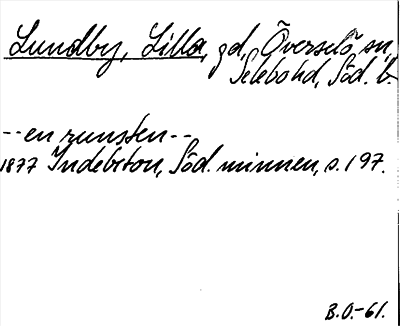 Lundby, Lilla, gd, Överselö sn,
Selebo hd, Söd. l.
-- en runsten --
1877 Indebetou, Söd. minnen, s. 197.
B.O.-61.